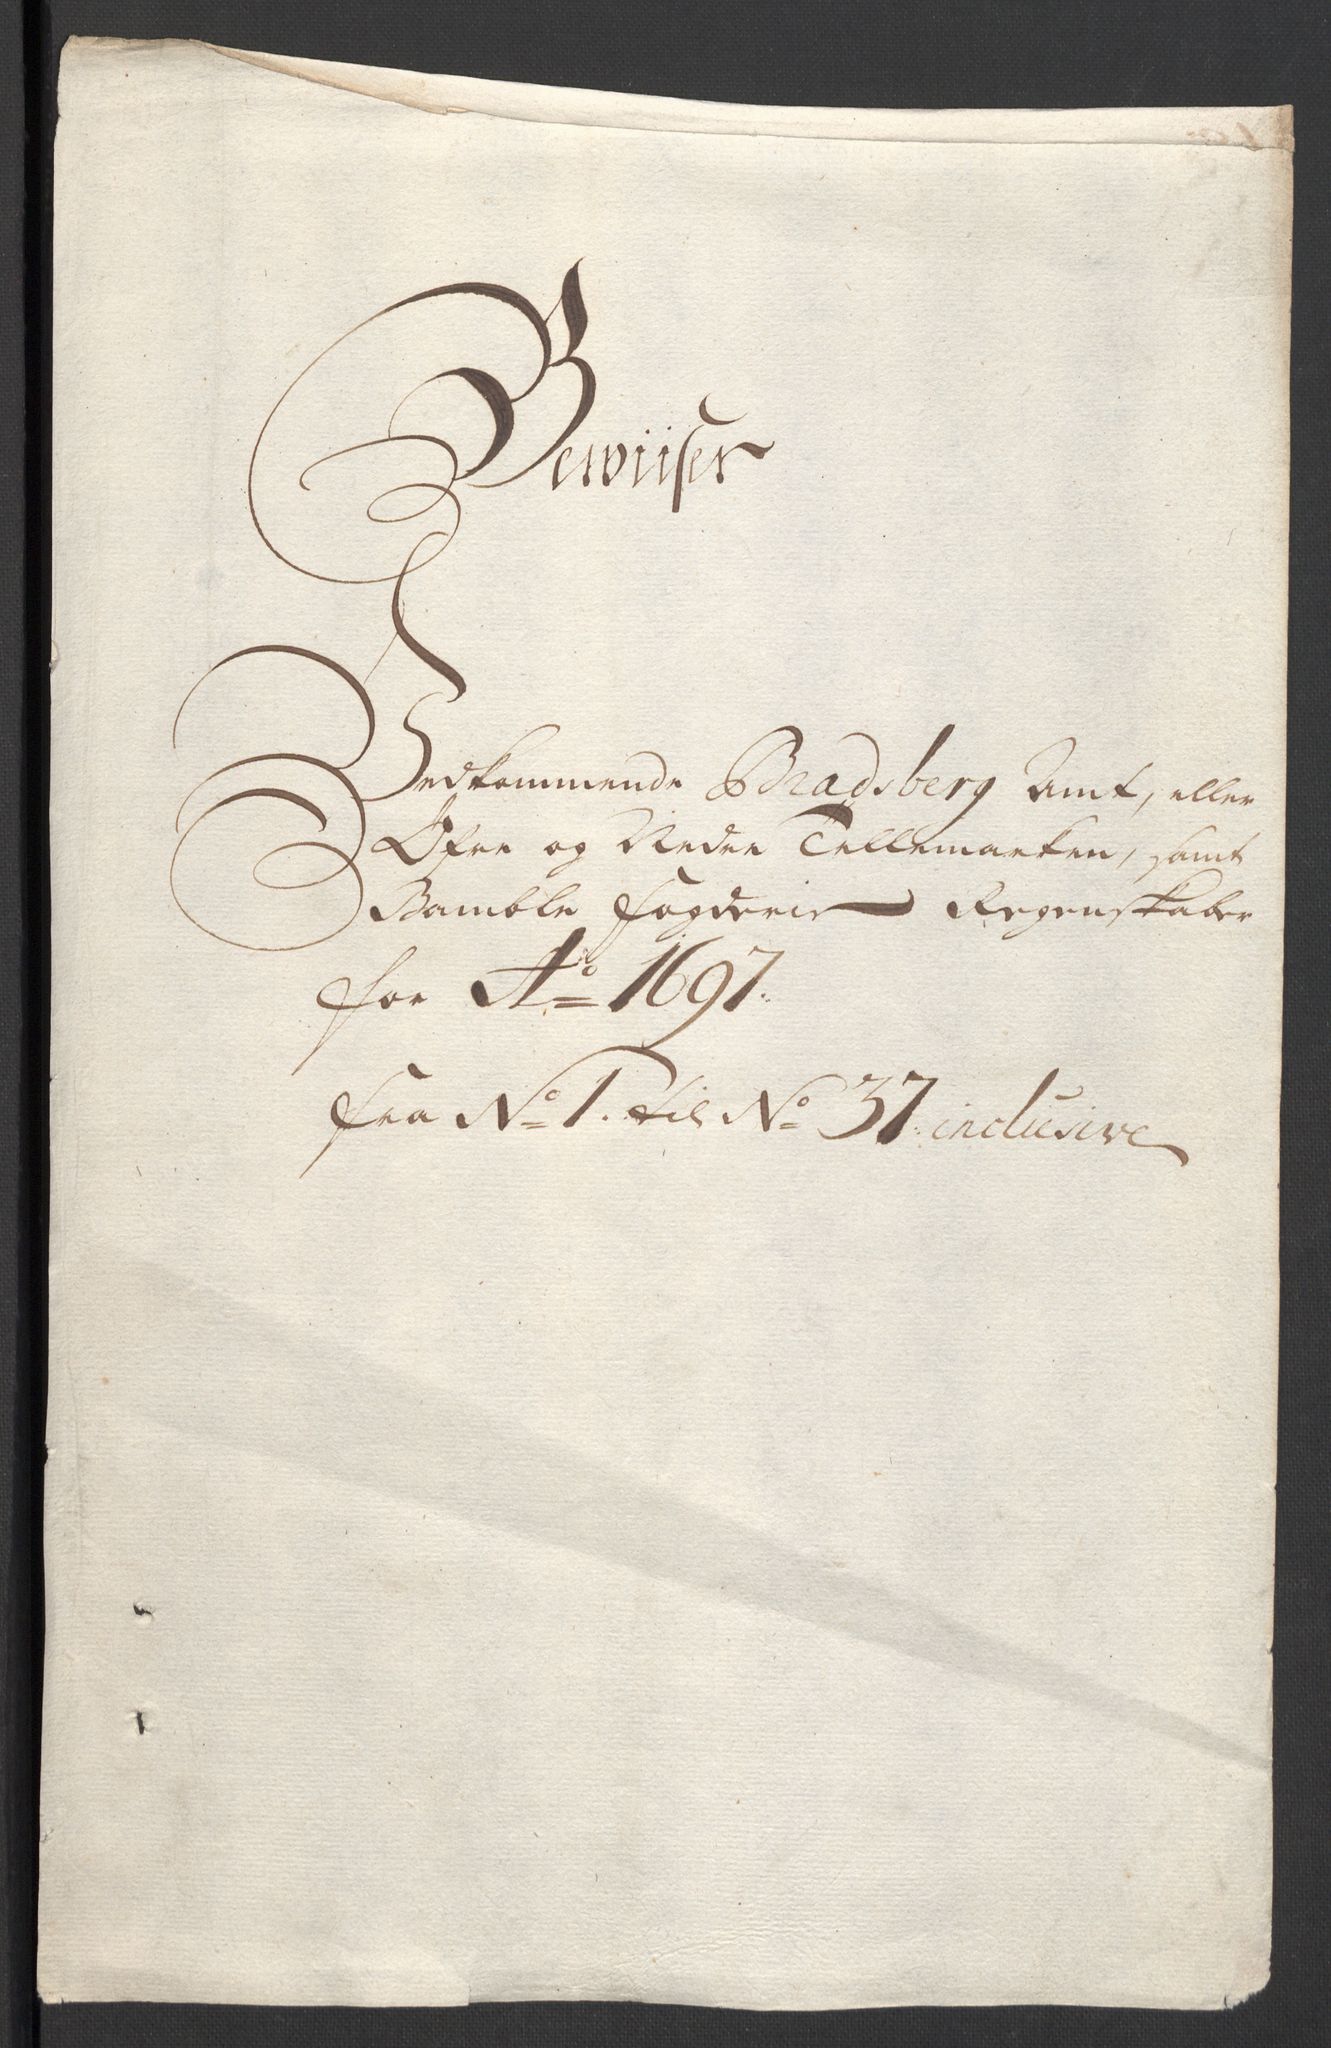 Bewiiser
Vedkommende Bradsberg Amt, eller
Øfre og Nedre Tellemarken, samt
Bamble fogderie Regenskaber
for Ao 1697.
fra No 1. til No 37. inclusive